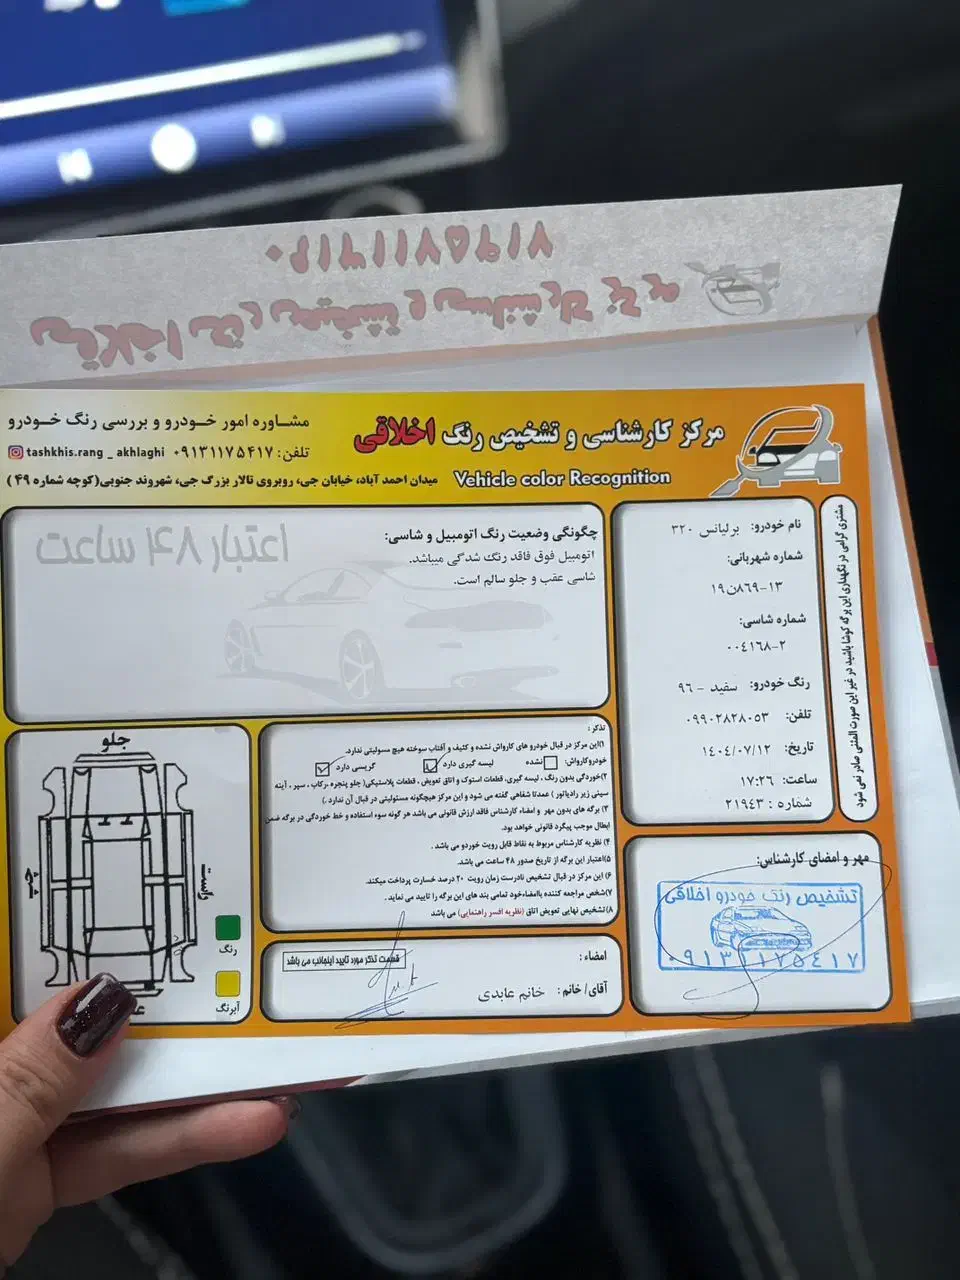 ۷۱۹۵۷۱۱۳۱۶۰
مرکز کارشناسی و تشخیص رنگ اخلاقی
Vehicle color Recognition
مشاوره امور خودرو و بررسی رنگ خودرو
تلفن: ۰۹۱۳۱۱۷۵۴۱۷ tashkhis.rang _ akhlaghi
میدان احمد آباد، خیابان جی، روبروی تالار بزرگ جی، شهروند جنوبی(کوچه شماره ۴۹)
مشتری گرامی در نگهداری این برگه کوشا باشید در غیر این صورت المثنی صادر نمی شود
نام خودرو: برلیانس ۳۲۰
شماره شهربانی:
۱۳-۸۶۹ن۱۹
شماره شاسی:
۰۰۴۱۶۸-۲
رنگ خودرو: سفید - ۹۶
تلفن: ۰۹۹۰۲۸۲۸۰۵۳
تاریخ: ۱۴۰۴/۰۷/۱۲
ساعت: ۱۷:۲۶
شماره: ۲۱۹۴۳
چگونگی وضعیت رنگ اتومبیل و شاسی:
اتومبیل فوق فاقد رنگ شدگی میباشد.
شاسی عقب و جلو سالم است.
اعتبار ۴۸ ساعت
تذکر:
۱)این مرکز در قبال خودرو های کارواش نشده و کثیف و آفتاب سوخته هیچ مسولیتی ندارد.
خودروکارواش: نشده لیسه گیری دارد گریسی دارد
۲)خوردگی بدون رنگ، لیسه گیری، قطعات استوک و اتاق تعویض، قطعات پلاستیکی( جلو پنجره ،رکاب ، سپر ، آینه
سینی زیر رادیاتور ) عمدتا شفاهی گفته می شود و این مرکز هیچگونه مسئولیتی در قبال آن ندارد .)
۳) برگه های بدون مهر و امضاء کارشناس فاقد ارزش قانونی می باشد هر گونه سوء استفاده و خط خوردگی در برگه ضمن
ابطال موجب پیگرد قانونی خواهد بود.
۴) نظریه کارشناس مربوط به نقاط قابل رویت خودرو می باشد .
۵)اعتبار این برگه از تاریخ صدور ۴۸ ساعت می باشد.
۶) این مرکز در قبال تشخیص نادرست زمان رویت ۲۰ درصد خسارت پرداخت میکند.
۷)شخص مراجعه کننده باامضاءخود تمامی بند های این برگه را تایید می نماید .
۸) تشخیص نهایی تعویض اتاق (نظریه افسر راهنمایی) می باشد
جلو
چپ
راست
رنگ
آبرنگ
امضاء :
قسمت تذکر مورد تایید اینجانب می باشد
آقای/ خانم : خانم عابدی
مهر و امضای کارشناس:
تشخیص رنگ خودرو اخلاقی
۰۹۱۳۱۱۷۵۴۱۷